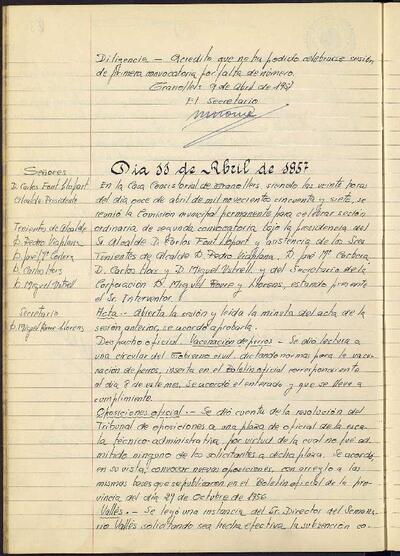 Diligencia - Acredito que no ha podido celebrarse sesión
de primera convocatoria por falta de número.
Granollers 9 de Abril de 1957
El Secretario
Día 11 de Abril de 1957
Señores
D. Carlos Font Llopart
Alcalde-Presidente
Tenientes de Alcalde
D. Pedro Viaplana
D. José Mª
D. Carlos
D. Miguel Vstrell
Secretario
D. Miguel Roure Llorens
En la Casa Consistorial de Granollers, siendo las veinte horas
del día once de abril de mil novecientos cincuenta y siete, se
reunió la Comisión municipal permanente para celebrar sesión
ordinaria, de segunda convocatoria, bajo la presidencia del
Sr. Alcalde D. Carlos Font Llopart y asistencia de los Sres
Tenientes de Alcalde D. Pedro Viaplana, D. José Mª
D. Carlos y D. Miguel Vstrell, y del Secretario de la
Corporación D. Miguel Roure y Llorens, estando presente
el Sr. Interventor.
Acta.- Abierta la sesión y leída la minuta del acta de la
sesión anterior, se acordó aprobarla.
Despacho oficial. Vacunación de perros - Se dió lectura a
una circular del Gobierno civil, dictando normas para la vacu-
nación de perros, inserta en el Boletín oficial correspondiente
al día 8 de este mes. Se acordó el enterado y que se lleve a
cumplimiento.
Oposiciones oficial.- Se dió cuenta de la resolución del
Tribunal de oposiciones a una plaza de oficial de la esca-
la técnico-administrativa, por virtud de la cual no fué ad-
mitido ninguno de los solicitantes a dicha plaza. Se acordó,
en su vista, convocar nuevas oposiciones, con arreglo a las
mismas bases que se publicaron en el Boletín oficial de la pro-
vincia del día 29 de Octubre de 1956.
Vallés.- Se leyó una instancia del Sr. Director del Semana-
rio Vallés solicitando sea hecha efectiva la subvención co-